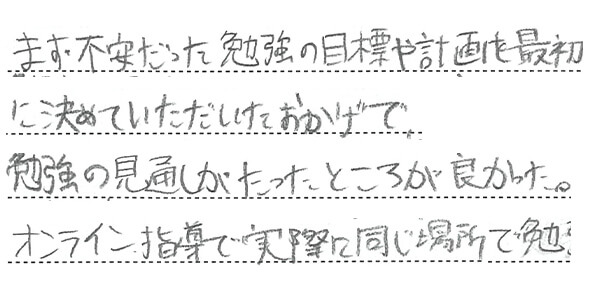 まず不安だった勉強の目標や計画を最初
に決めていただいたおかげで、
勉強の見通しがたったところが良かった。
オンライン指導で実際に同じ場所で勉